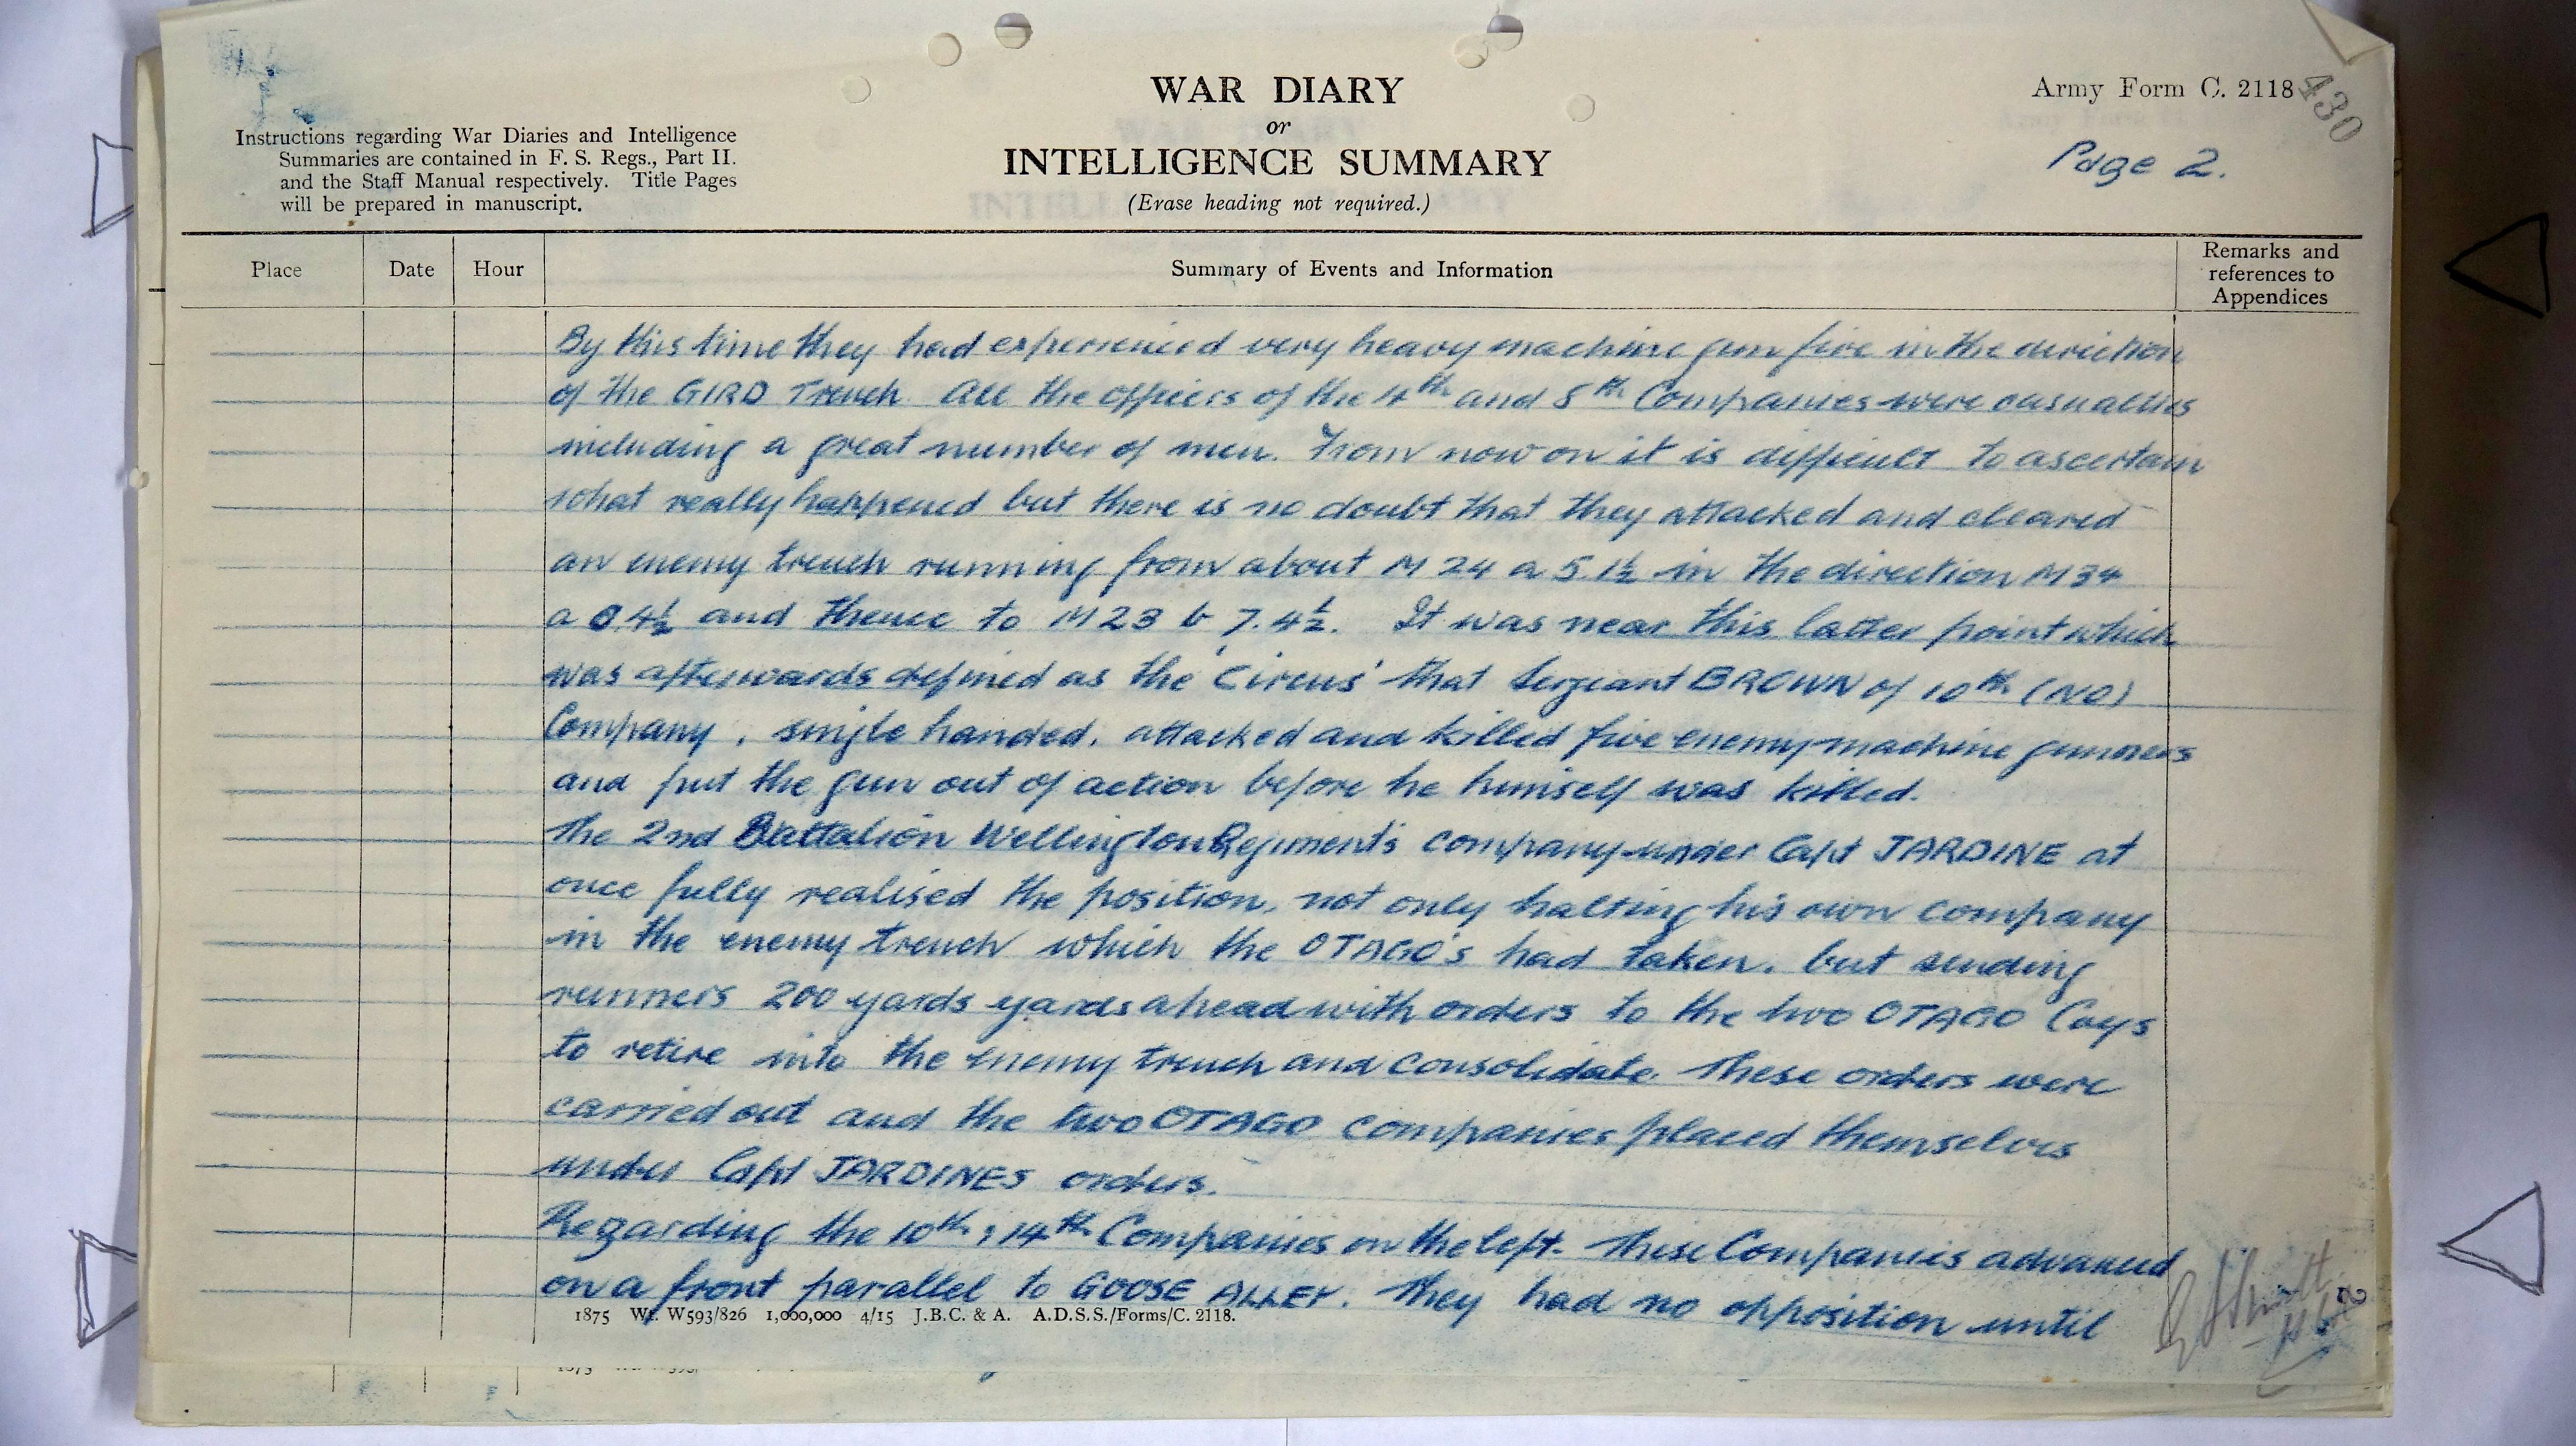 WAR DIARY
or
INTELLIGENCE SUMMARY
(Erase heading not required.)
Army Form C. 2118
430
Page 2.
Instructions regarding War Diaries and Intelligence
Summaries are contained in F. S. Regs., Part II.
and the Staff Manual respectively. Title Pages
will be prepared in manuscript.
Place
Date
Hour
Summary of Events and Information
Remarks and
references to
Appendices
By this time they had experienced very heavy machine gun fire in the direction
of the GIRD Trench. All the officers of the 4th and 8th Companies were casualties
including a great number of men. From now on it is difficult to ascertain
what really happened but there is no doubt that they attacked and cleared
an enemy trench running from about M 24 a 5.1½ in the direction M34
a 0.4½ and thence to M 23 b 7.4½. It was near this latter point which
was afterwards defined as the 'Circus' that Sergeant BROWN of 10th (NO)
Company, single handed, attacked and killed five enemy machine gunners
and put the gun out of action before he himself was killed.
The 2nd Battalion Wellington Regiment's company under Capt JARDINE at
once fully realised the position, not only halting his own company
in the enemy trench which the OTAGO's had taken, but sending
runners 200 yards yards ahead with orders to the two OTAGO Coys
to retire into the enemy trench and consolidate. These orders were
carried out and the two OTAGO Companies placed themselves
under Capt JARDINES orders.
Regarding the 10th & 14th Companies on the left. These Companies advanced
on a front parallel to GOOSE ALLEY. They had no opposition until
1875 Wt. W593/826 1,000,000 4/15 J.B.C. & A. A.D.S.S./Forms/C. 2118.